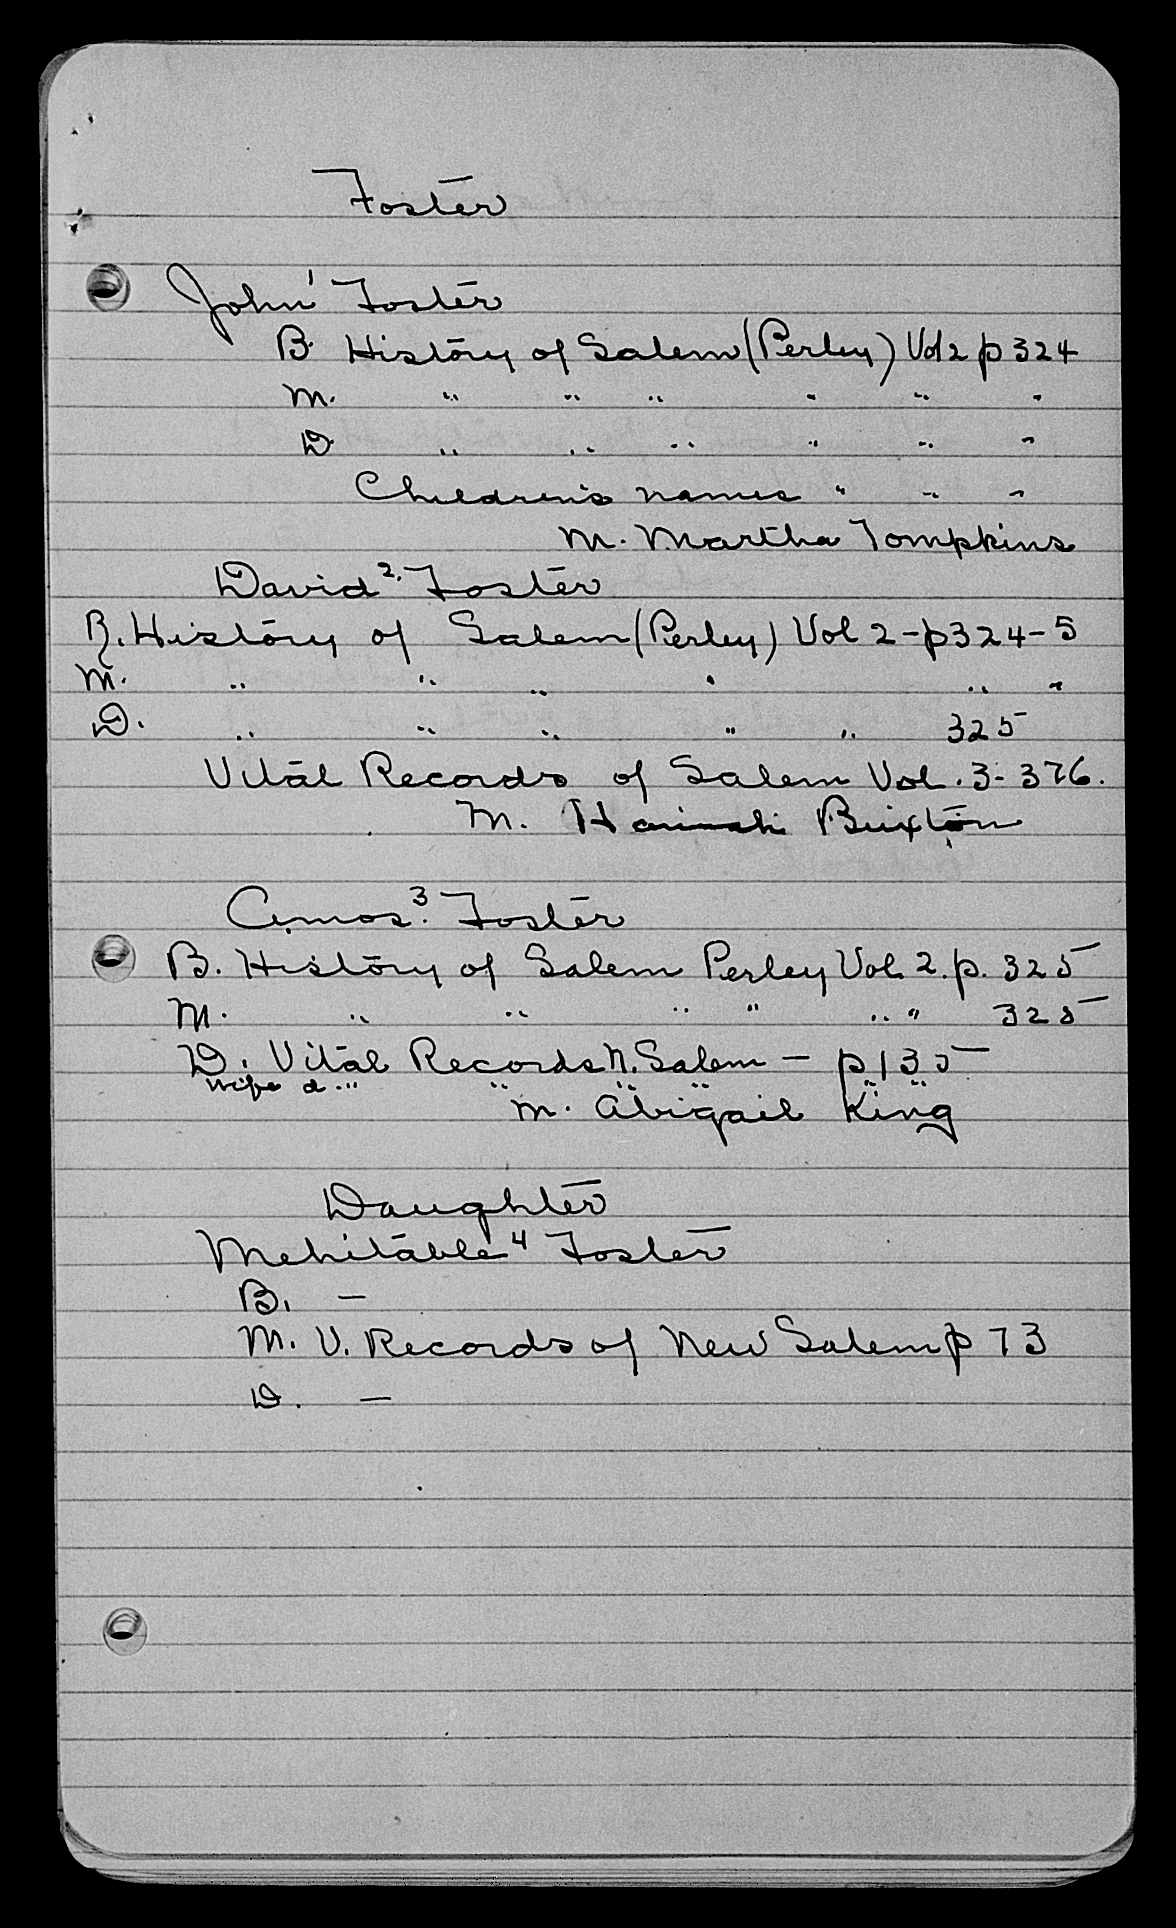 Foster
John¹ Foster
B. History of Salem (Perley) Vol 2 p 324
M. " " " " " "
D. " " " " " "
Children's names " " "
M. Martha Tompkins
David². Foster
B. History of Salem (Perley) Vol 2 - p 324-5
M. " " " " " "
D. " " " " " 325
Vital Records of Salem Vol. 3 - 376.
M. Hannah Buxton
Amos³. Foster
B. History of Salem Perley Vol. 2. p. 325
M. " " " " " " 325
D. Vital Records N. Salem - p 135
Wife d. " " " " " "
M. Abigail King
Daughter
Mehitable⁴ Foster
B. -
M. V. Records of New Salem p 73
D. -